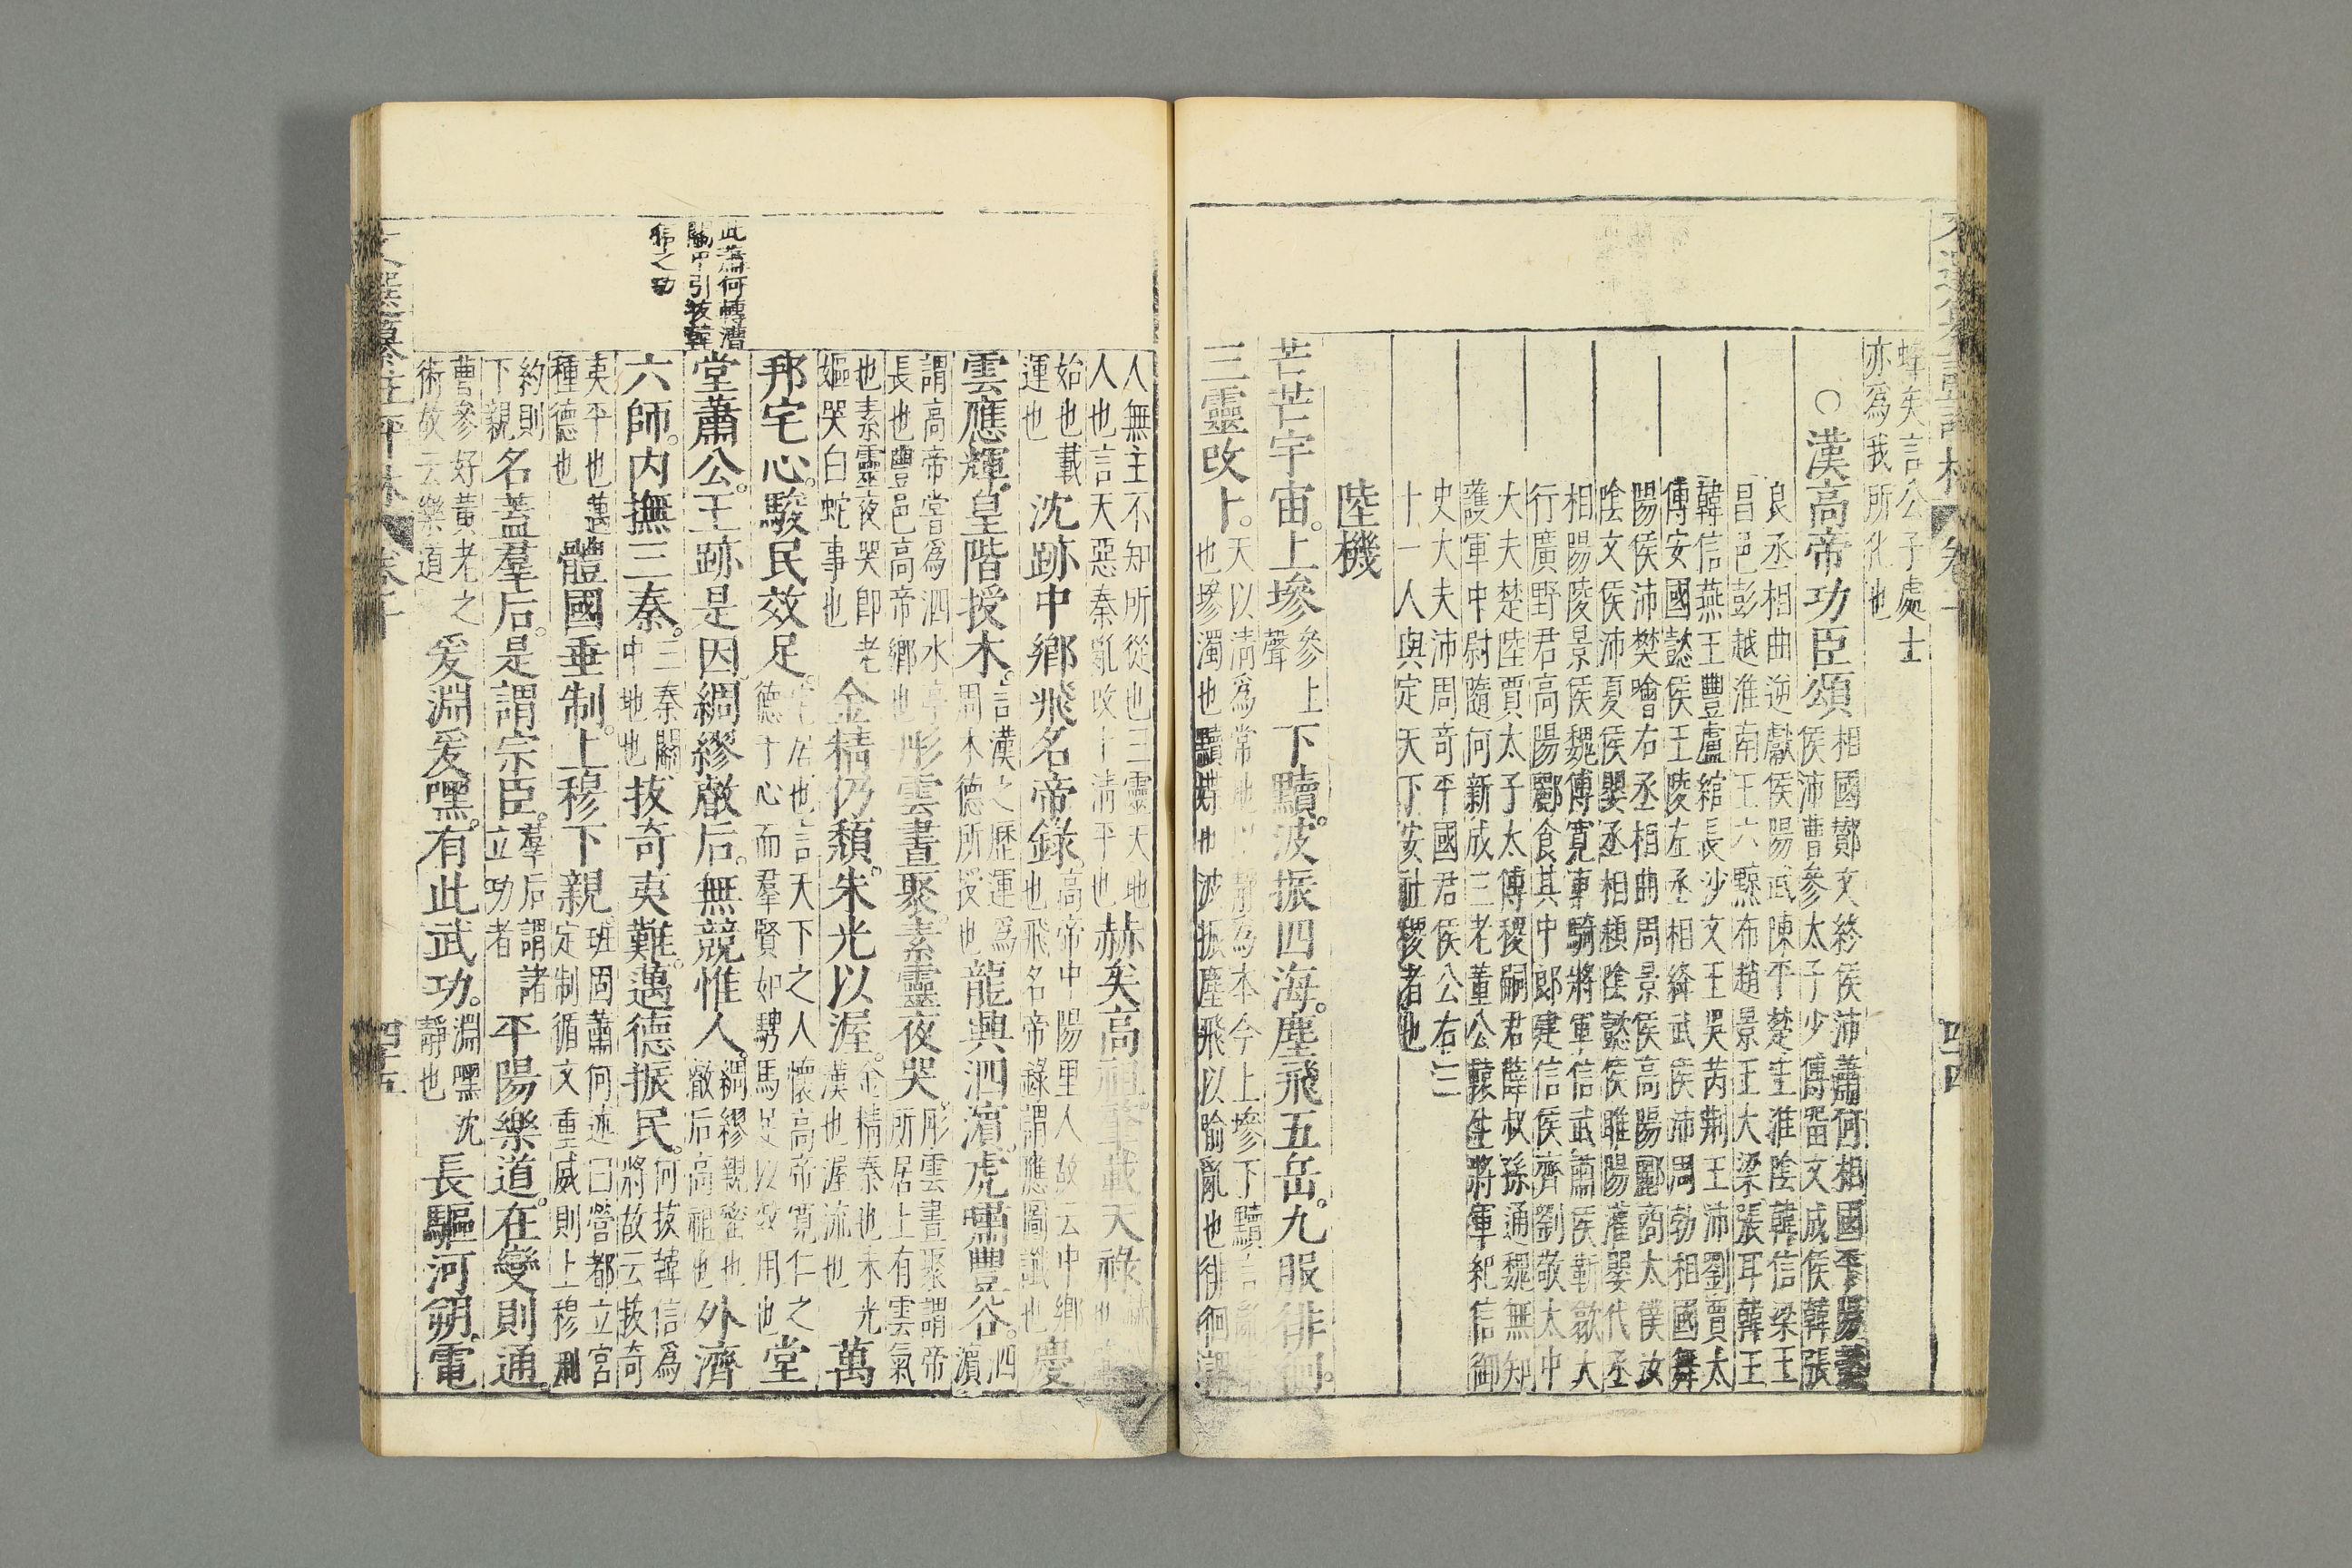 文選纂註評林 卷十 四四
蜂矣言公子處士
亦爲我所化也
○漢高帝功臣頌
相國酇文終侯沛蕭何相國平陽懿
侯沛曹參太子少傅留文成侯韓張
良丞相曲逆獻侯陽武陳平楚王淮陰韓信梁王
昌邑彭越淮南王六黥布趙景王大梁張耳韓王
韓信燕王豐盧綰長沙文王吳芮荆王沛劉賈太
傅安國懿侯王陵左丞相絳武侯沛周勃相國舞
陽侯沛樊噲右丞相曲周景侯高陽酈商太僕汝
陰文侯沛夏侯嬰丞相潁陰懿侯睢陽灌嬰代丞
相陽陵景侯魏傅寬車騎將軍信武肅侯靳歙大
行廣野君高陽酈食其中郎建信侯齊劉敬太中
大夫楚陸賈太子太傅稷嗣君薛叔孫通魏無知
護軍中尉隨何新成三老董公轅生將軍紀信御
史大夫沛周苛平國君侯公右三
十一人與定天下安社稷者也
陸機
芒芒宇宙。上墋參上聲下黷。波振四海。塵飛五岳。九服徘徊。
三靈改卜。
天以清爲常地以靜爲本今上墋下黷言亂常
也墋濁也黷媟也波振塵飛以喻亂也徘徊謂
人無主不知所從也三靈天地
人也言天惡秦亂改卜清平也
赫矣高祖。肇載天祿。
始也載
運也
沈跡中鄉。飛名帝錄。
高帝中陽里人故云中鄉
也飛名帝錄謂應圖讖也
慶
雲應輝。皇階授木。
言漢之歷運爲
周木德所授也
龍興泗濱。虎嘯豐谷。
泗濱
謂高帝嘗爲泗水亭
長也豐邑高帝鄉也
彤雲晝聚。素靈夜哭。
彤雲晝聚謂帝
所居上有雲氣
也素靈夜哭卽老
嫗哭白蛇事也
金精仍頹。朱光以渥。
金精秦也朱光
漢也渥流也
萬
邦宅心。駿民效足。
宅居也言天下之人懷高帝寬仁之
德于心而羣賢如騁馬足以效用也
堂
堂蕭公。王跡是因。綢繆叡后。無競惟人。
綢繆親密也
叡后高祖也
外濟
六師。內撫三秦。
三秦關
中地也
拔奇夷難。邁德振民。
何拔韓信爲
將故云拔奇
夷平也邁
種德也
體國垂制。上穆下親
班固蕭何述曰營都立宮
定制循文重威則上穆刑
約則
下親
名蓋羣后。是謂宗臣。
羣后謂諸
立功者
平陽樂道。在變則通。
曹參好黃老之
術故云樂道
爰淵爰嘿。有此武功。
淵嘿沈
靜也
長驅河朔。電
此蕭何轉漕
關中引拔韓
信之功
文選纂註評林 卷十 四五